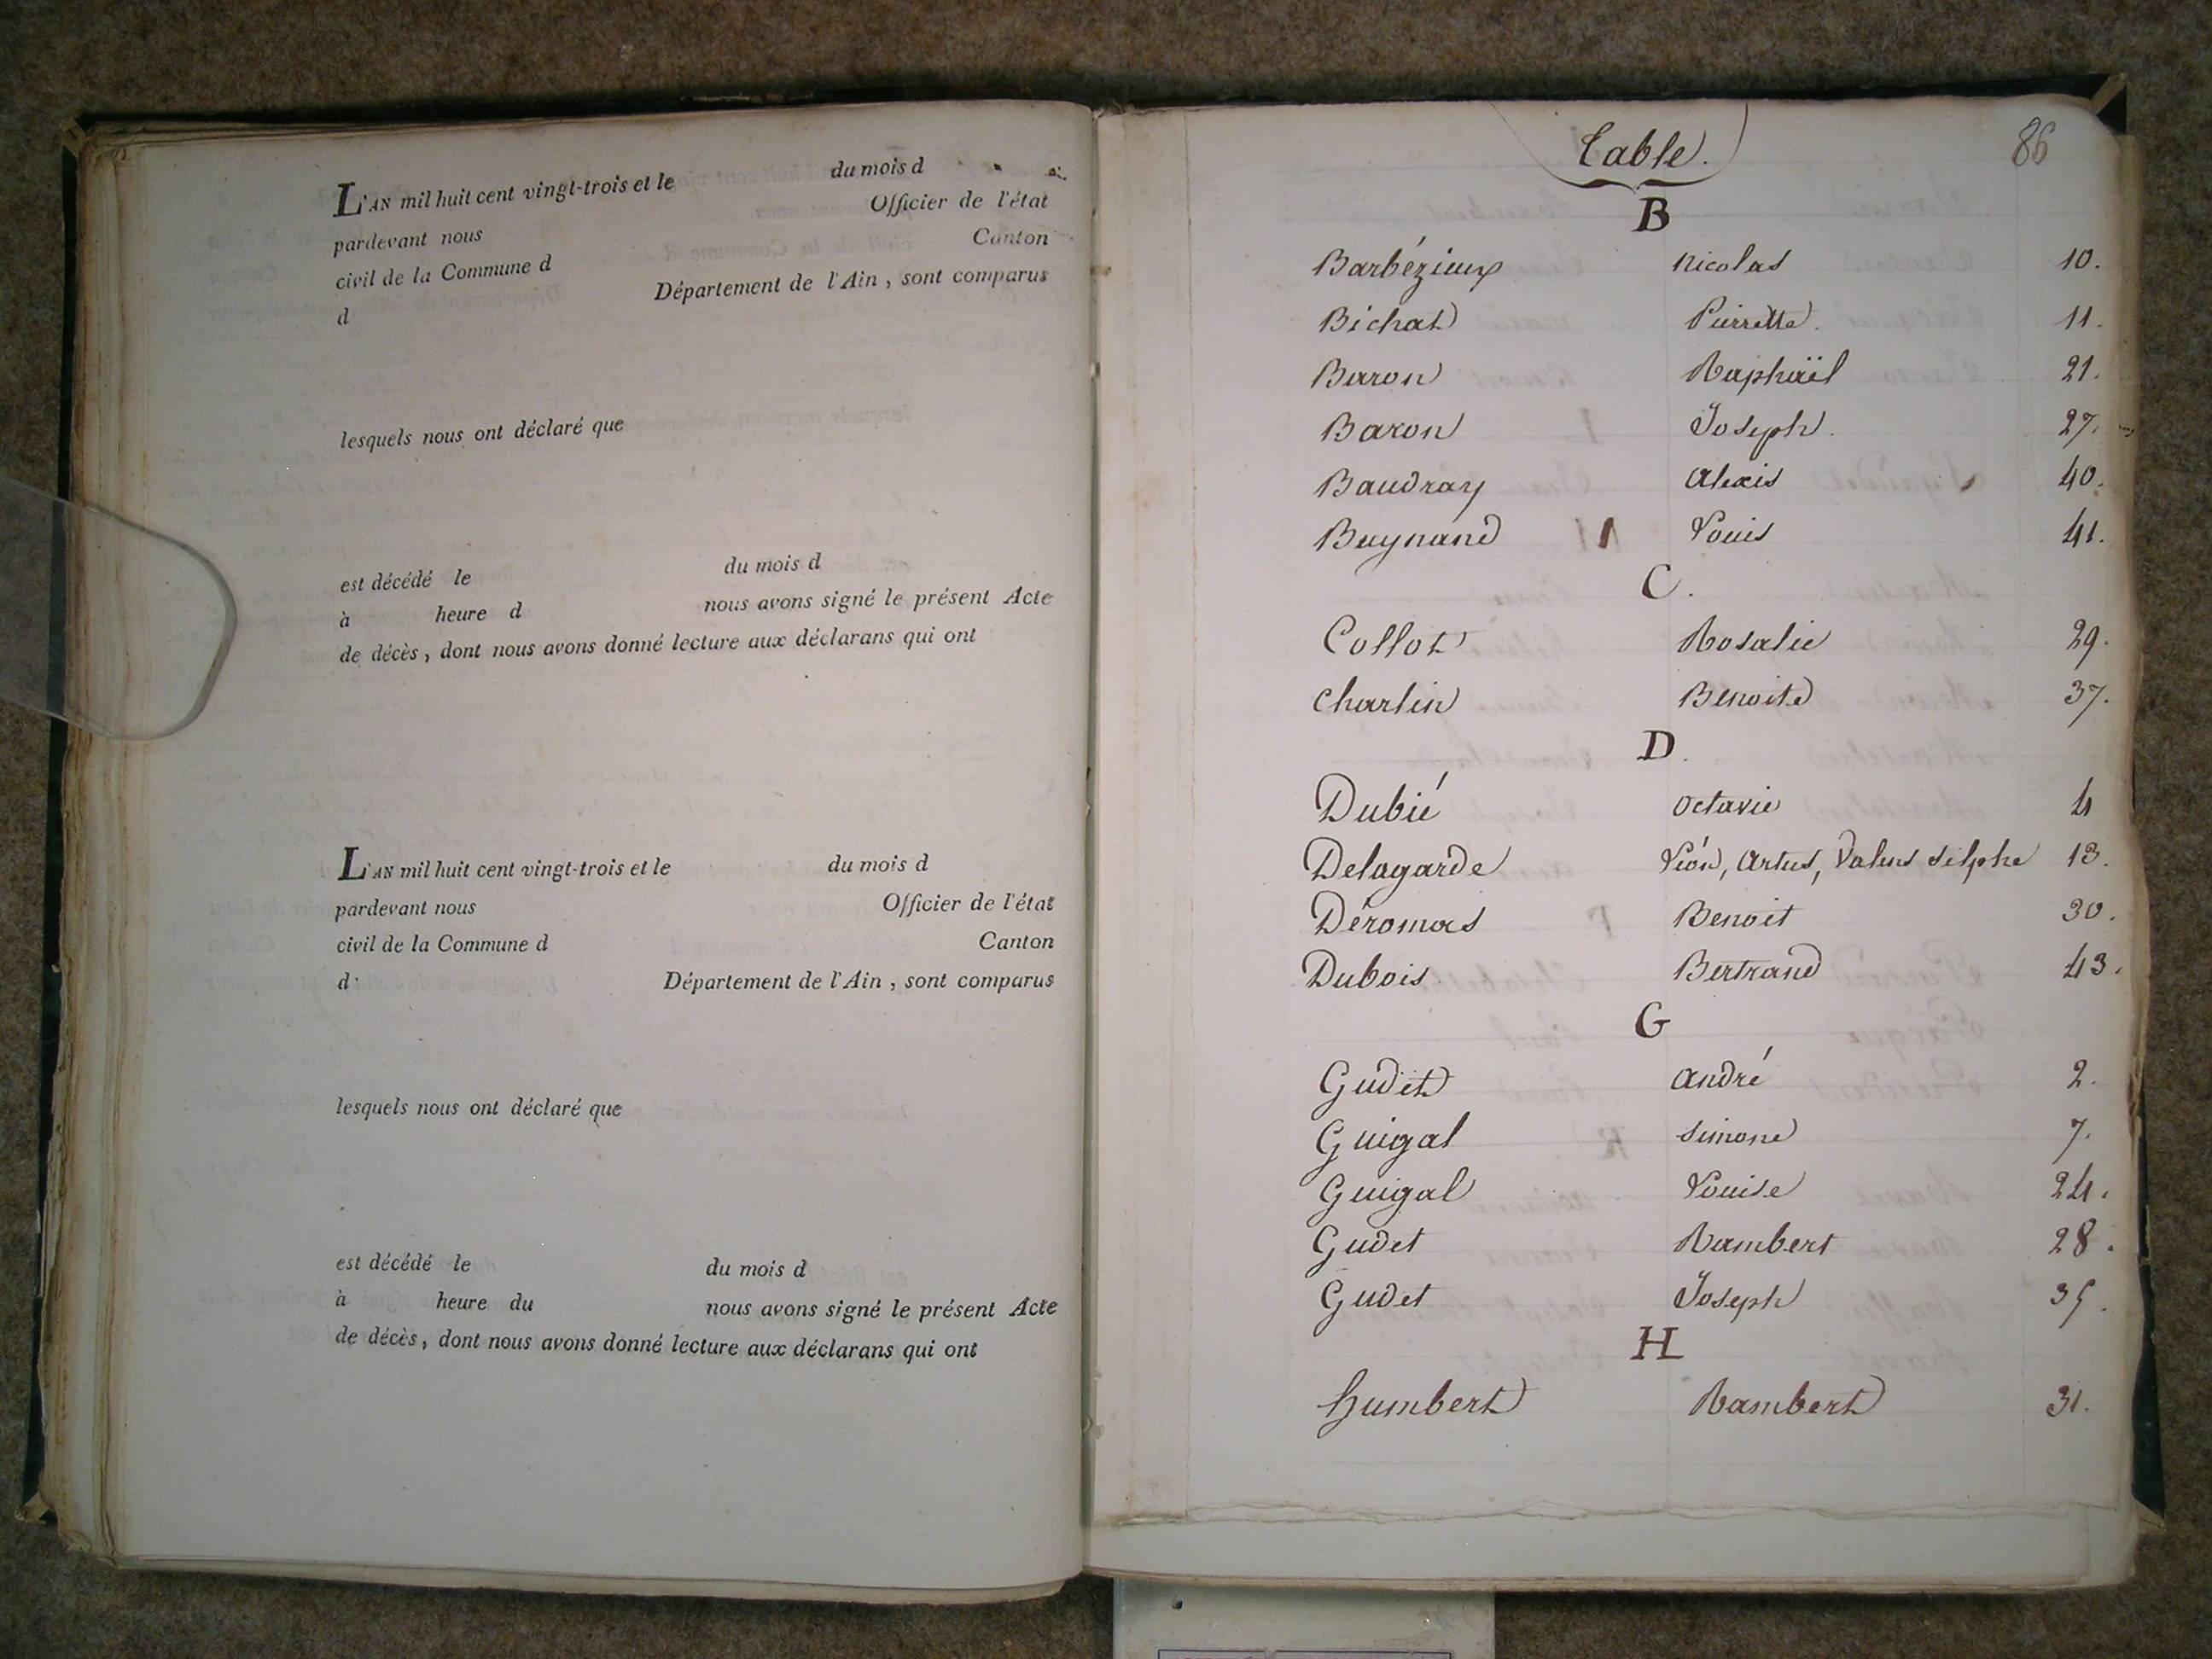 L'AN mil huit cent vingt-trois et le du mois d
pardevant nous Officier de l'état
civil de la Commune d Canton
d Département de l'Ain, sont comparus
lesquels nous ont déclaré que
est décédé le du mois d
à heure d nous avons signé le présent Acte
de décès, dont nous avons donné lecture aux déclarans qui ont
L'AN mil huit cent vingt-trois et le du mois d
pardevant nous Officier de l'état
civil de la Commune d Canton
d Département de l'Ain, sont comparus
lesquels nous ont déclaré que
est décédé le du mois d
à heure du nous avons signé le présent Acte
de décès, dont nous avons donné lecture aux déclarans qui ont
86
Table.
B
Barbézieux Nicolas 10.
Bichat Pierrette. 11.
Baron Raphaël 21.
Baron Joseph. 27.
Baudray Alexis 40.
Buynand Louis 41.
C.
Collot Rosalie 29.
Charlin Benoite 37.
D.
Dubié Octavie 4
Delagarde Léon, Artus, 13.
Deromas Benoit 30.
Dubois Bertrand 43.
G
Gudet André 2.
Guigal Simone 7.
Guigal Louise 24.
Gudet Rambert 28.
Gudet Joseph 35.
H
humbert Rambert 31.